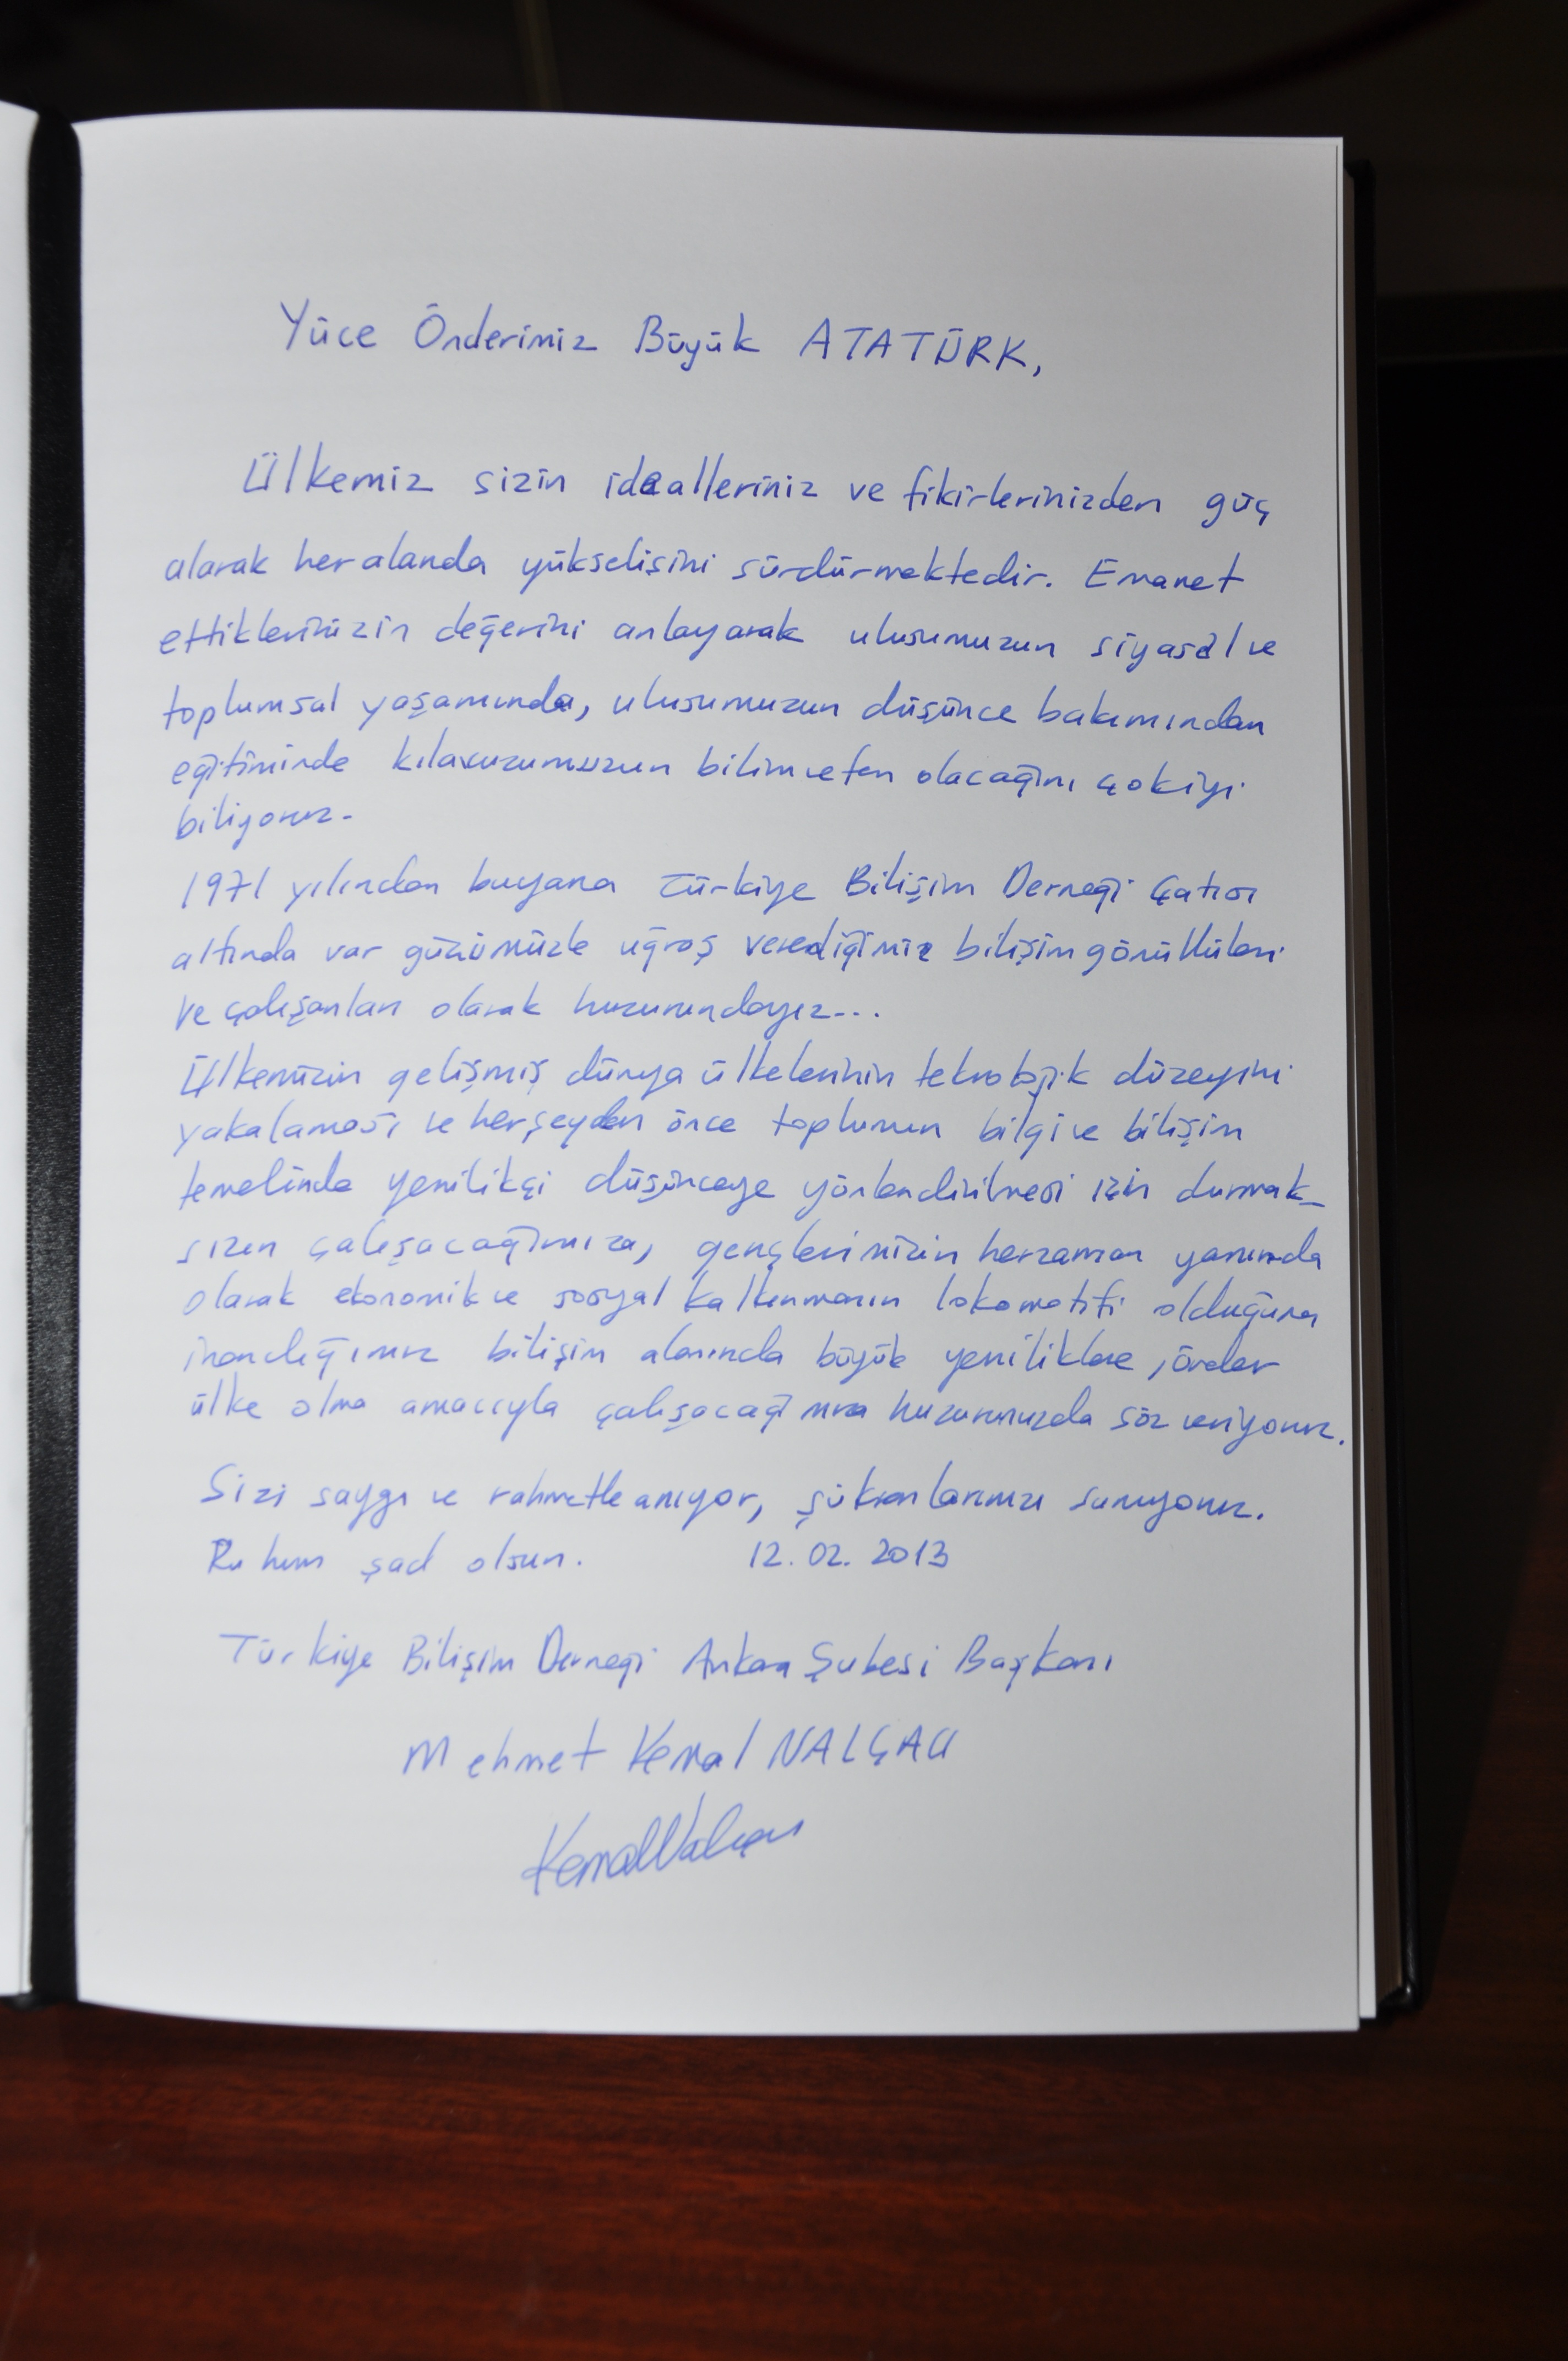 Yüce Önderimiz Büyük ATATÜRK,
Ülkemiz sizin idealleriniz ve fikirlerinizden güç
alarak her alanda yükselişini sürdürmektedir. Emanet
ettiklerinizin değerini anlayarak ulusumuzun siyasal ve
toplumsal yaşamında, ulusumuzun düşünce bakımından
eğitiminde kılavuzumuzun bilim ve fen olacağını çok iyi
biliyoruz.
1971 yılından buyana Türkiye Bilişim Derneği Çatısı
altında var gücümüzle uğraş verdiğimiz bilişim gönüllüleri
ve çalışanları olarak huzurundayız...
Ülkemizin gelişmiş dünya ülkelerinin teknolojik düzeyini
yakalaması ve herşeyden önce toplumun bilgi ve bilişim
temelinde yenilikçi düşünceye yönlendirilmesi için durmak-
sızın çalışacağımıza, gençlerimizin herzaman yanında
olarak ekonomik ve sosyal kalkınmanın lokomotifi olduğuna
inandığımız bilişim alanında büyük yeniliklere, önder
ülke olma amacıyla çalışacağımıza huzurunuzda söz veriyoruz.
Sizi saygı ve rahmetle anıyor, şükranlarımızı sunuyoruz.
Ruhun şad olsun. 12.02.2013
Türkiye Bilişim Derneği Ankara Şubesi Başkanı
Mehmet Kemal NALÇACI
Kemal Nalçacı